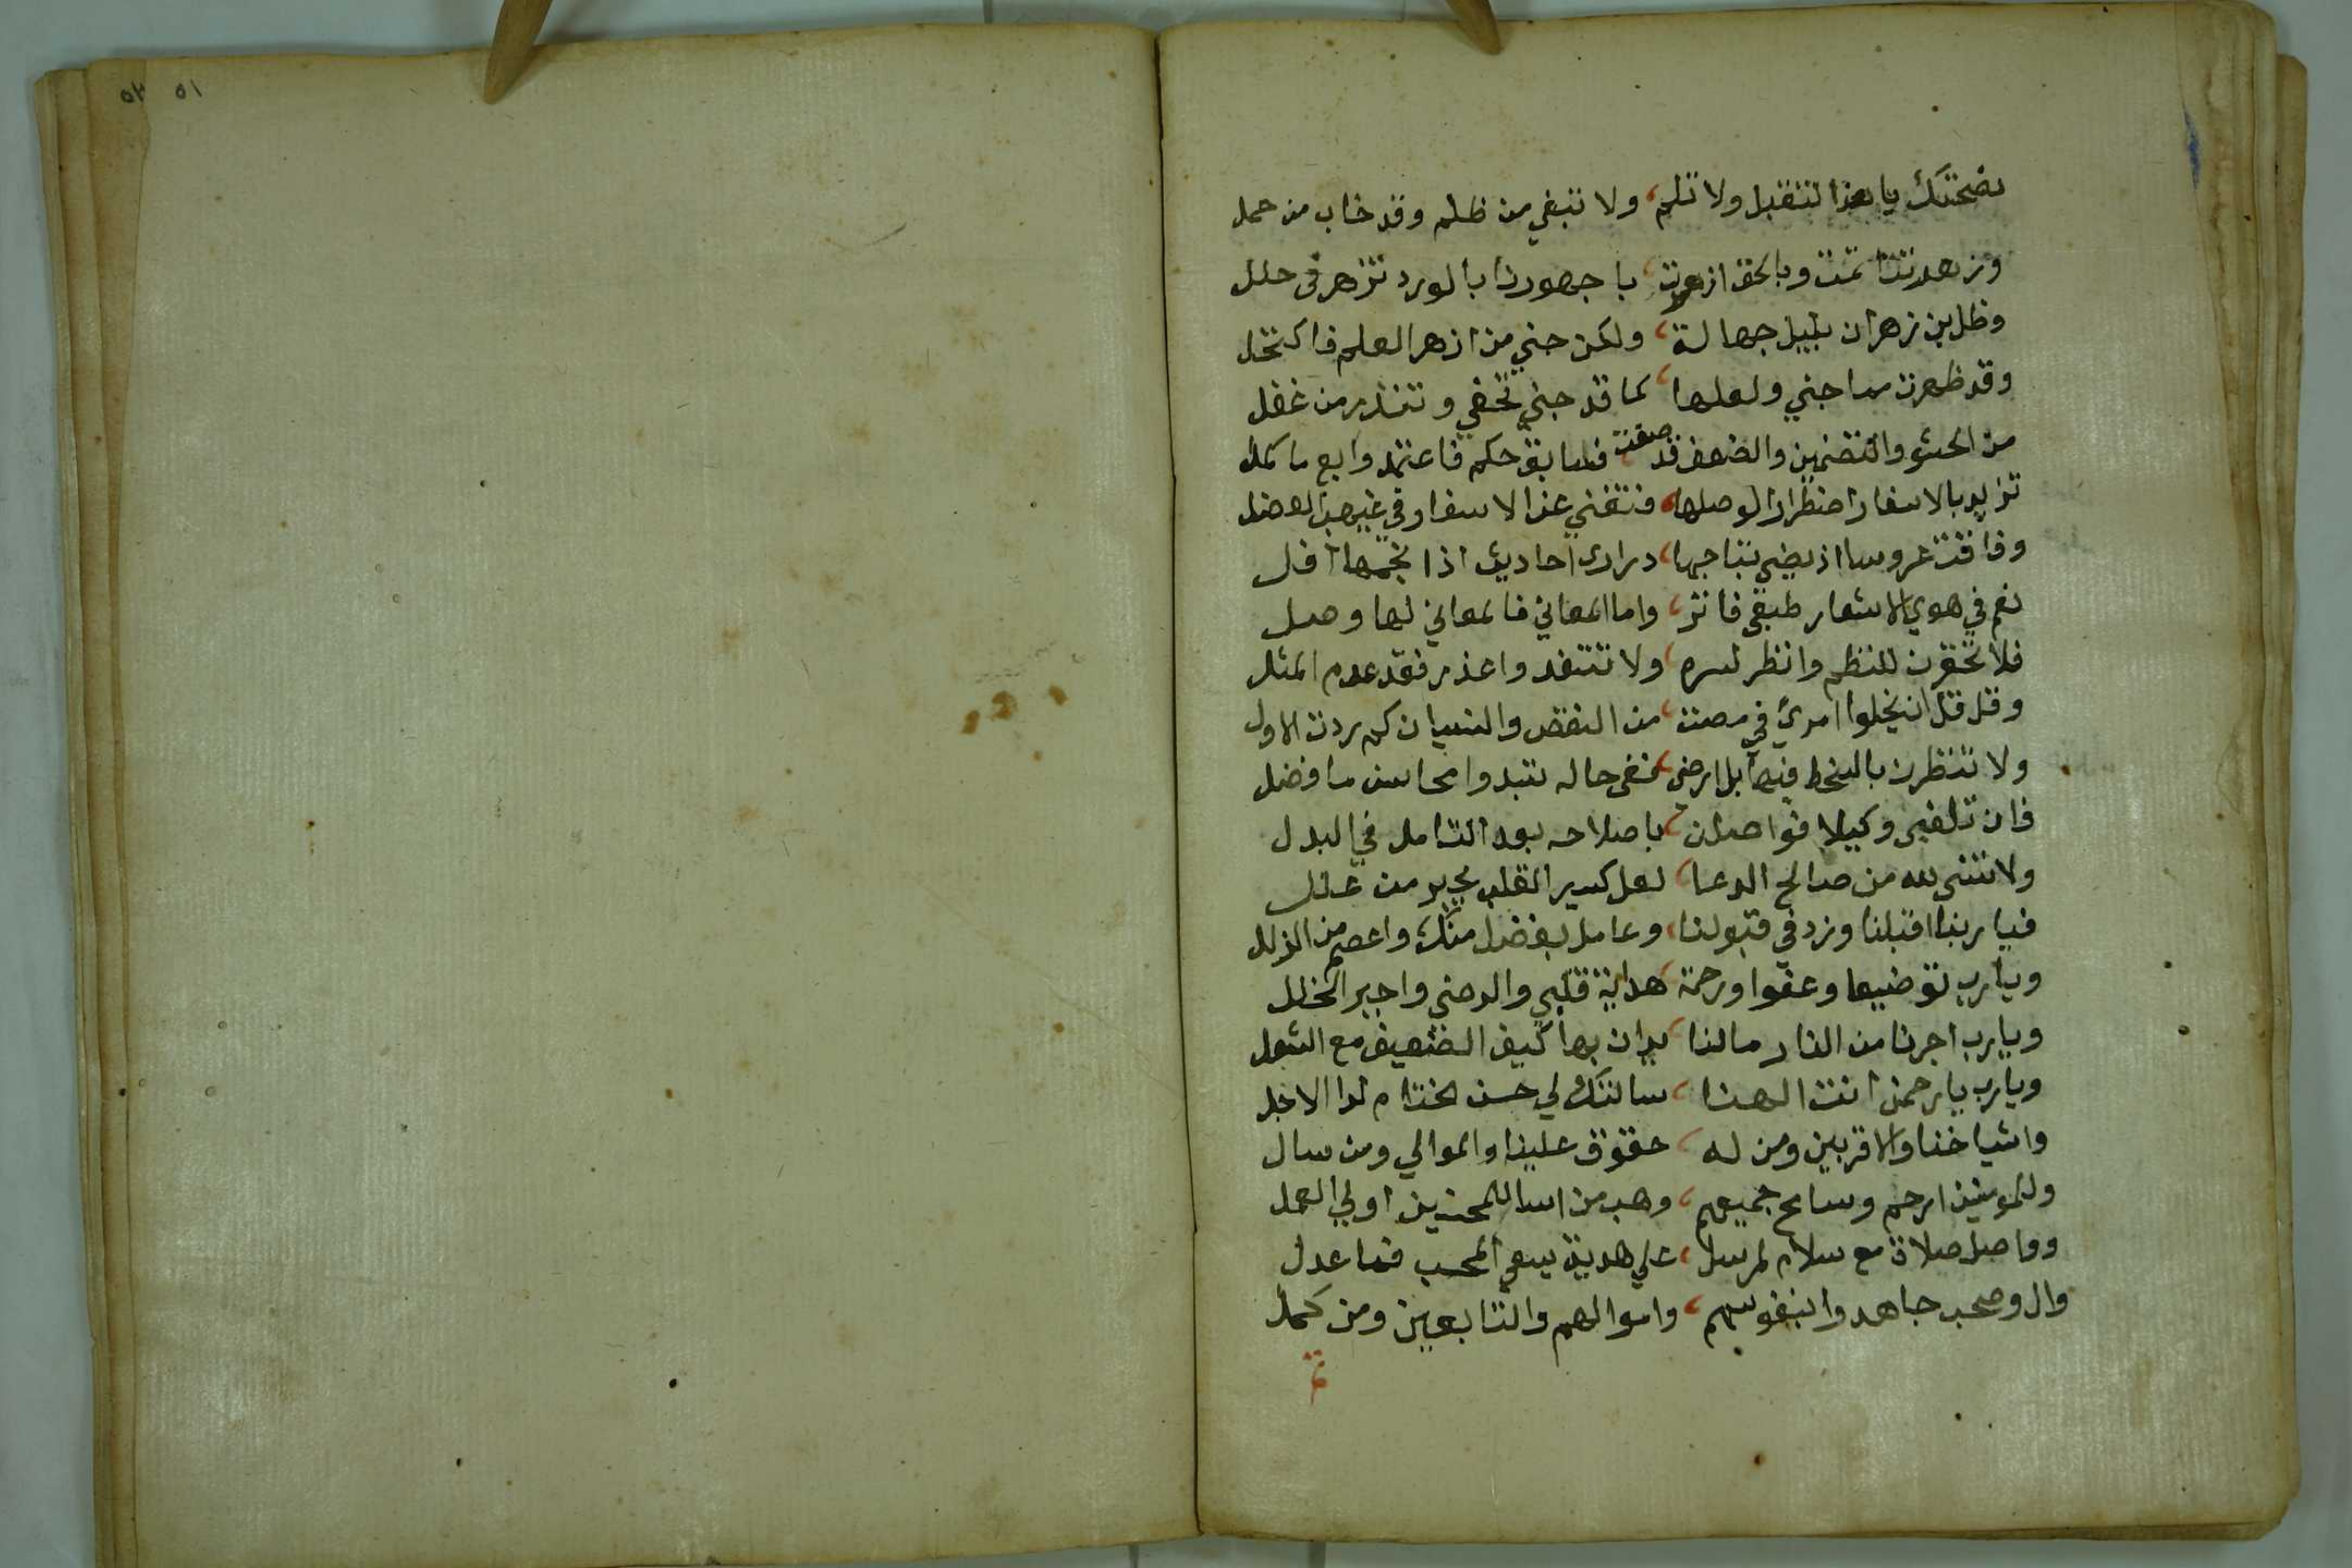 نصحتك يا هذا لتقبل ولا تلم، ولا تبغي من ظلم وقد خاب من حمل
وزهدتنا تمت وبالحق ازهرت، با جهورنا بالورد تزهر في حلل
وظل بن زهران بليل جهالة، ولكن جني من ازهر العلم فاكتحل
وقد ظهرت مما جني ولعلها، كما قد جني تخفي وتنذر من غفل
من الحشو والتضمين والضعف قد صفت، فسابق حكم فاعتمد وابع ما كمل
تزيد بالاسفار اضطرارا لوصلها، فتغني عن الاسفار وفي غيرها العضل
وفاقت عروسا اذ يضي بتاجها، دراري احاديث اذا نجمها افل
نعم في هوي الاشعار طبقي فاتر، واما المعاني فالمعاني لها وصل
فلا تحقرن للنظم وانظر لسره، ولا تنتقد واعذر فقد عدم المثل
وقل قل ان يخلوا امرئ في مصنت، من النقص والنسيان كم ردت الاول
ولا تنظرن بالسخط فيها بل ارضي، ففي حاله تبدوا محاسن ما فضل
فان تلفي وكيلا فواصلن، باصلاحه بعد التامل في البدل
ولا تنسي لله من صالح الدعا، لعل كسير القلب يجبر من علل
فيا ربنا اقبلنا وزد في قبولنا، وعامل بفضل منك واعصم من الزلل
ويا رب توفيقا وعفوا ورحمة، هداية قلبي والرضي واجبر الخلل
ويا رب اجرنا من النار مالنا، يدان بها كيف الضعيف مع الشعل
ويا رب يا رحمن انت الهنا، سالتك لي حسن الختام لدا الاجل
واشياخنا والاقربين ومن له، حقوق علينا والموالي ومن سال
وللمومنين ارحم وسامح جميعهم، وهب من اسا للمحسنين اولي العمل
وواصل صلاة مع سلام لمرسل، علي هديه يسعي المحب فما عدل
وال وصحب جاهدوا بنفوسهم، واموالهم والتابعين ومن كمل
تم
٥١ ٥٣